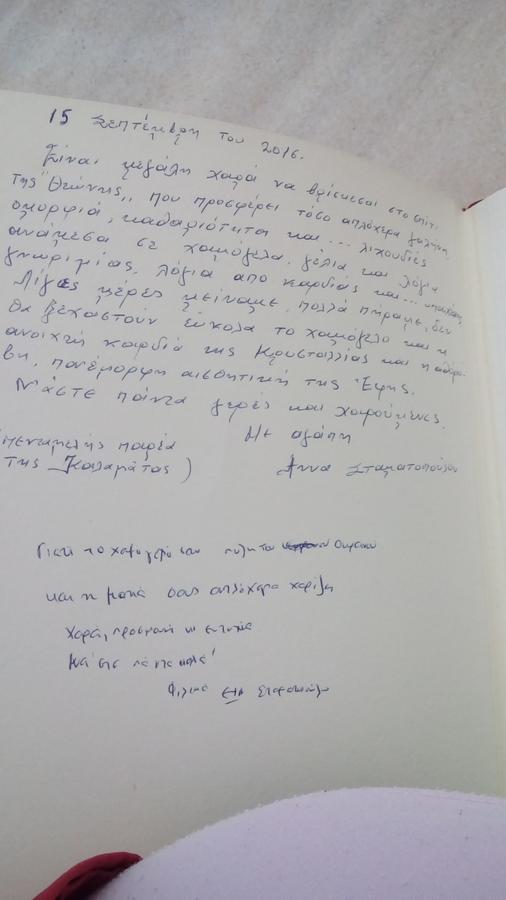 15 Σεπτέμβρη του 2016.
Είναι μεγάλη χαρά να βρίσκεσαι στο σπίτι
της "Θεώνης,, που προσφέρει τόσο απλόχερα γαλήνη,
ομορφιά, καθαριότητα και ... λιχουδιές
ανάμεσα σε χαμόγελα, γέλια και λόγια
γνωριμίας, λόγια από καρδιάς και...
Λίγες μέρες μείναμε, πολλά πήραμε, δεν
θα ξεχαστούν εύκολα το χαμόγελο και η
ανοιχτή καρδιά της Κρυσταλλίας και η αθόρυ-
βη, πανέμορφη αισθητική της Έφης.
Νάστε πάντα γερές και χαρούμενες.
Με αγάπη
(πενταμελής παρέα
της Καλαμάτας)
Άννα Σταματοπούλου
Γιατί το χαμόγελό σας του ουρανού
και η ματιά σας απλόχερα χαρίζει
Χαρά, προσμονή κι ευτυχία
Νά στε πάντα καλά!
Φιλικά